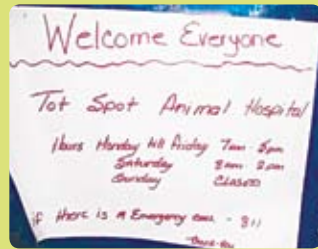 Welcome Everyone
Tot Spot Animal Hospital
Hours Monday till Friday 7am - 5pm
Saturday 8am - 2pm
Sunday CLOSED
if there is a Emergency - 811